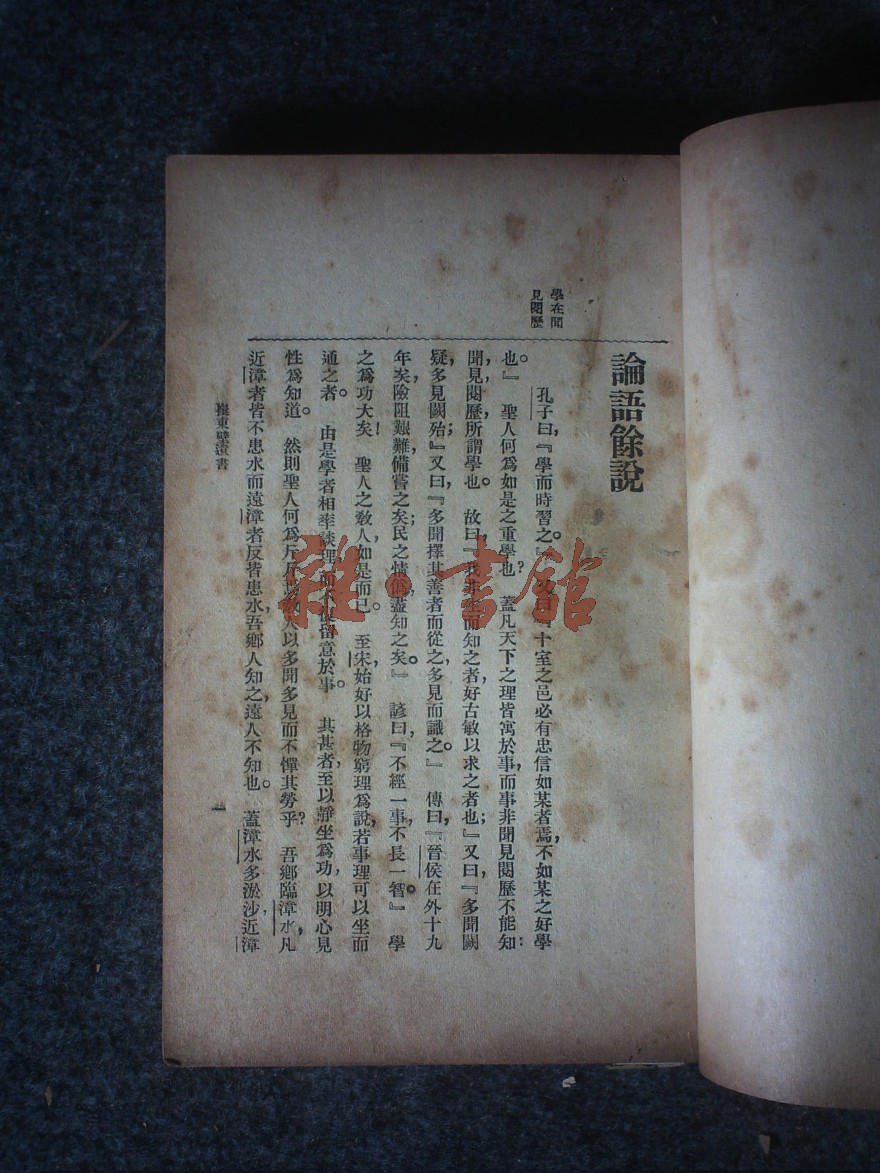 論語餘說
學在聞
見閱歷
孔子曰，『學而時習之。』又曰，『十室之邑必有忠信如某者焉，不如某之好學
也。』　聖人何爲如是之重學也？　蓋凡天下之理皆寓於事，而事非聞見閱歷不能知：
聞，見，閱歷，所謂學也。　故曰，『我非生而知之者，好古敏以求之者也；』又曰，『多聞闕
疑，多見闕殆；』又曰，『多聞擇其善者而從之，多見而識之。』　傳曰，『晉侯在外十九
年矣，險阻艱難，備嘗之矣；民之情僞，盡知之矣。』　諺曰，『不經一事，不長一智。』　學
之爲功大矣！　聖人之敎人，如是而已。　至宋，始好以格物窮理爲說，若事理可以坐而
通之者。　由是學者相率談理而不復留意於事。　其甚者，至以靜坐爲功，以明心見
性爲知道。　然則聖人何爲斤斤焉敎人以多聞多見而不憚其勞乎？　吾鄉臨漳水，凡
近漳者皆不患水而遠漳者反皆患水，吾鄉人知之，遠人不知也。　蓋漳水多淤沙，近漳
崔東壁遺書
一
雜·書館